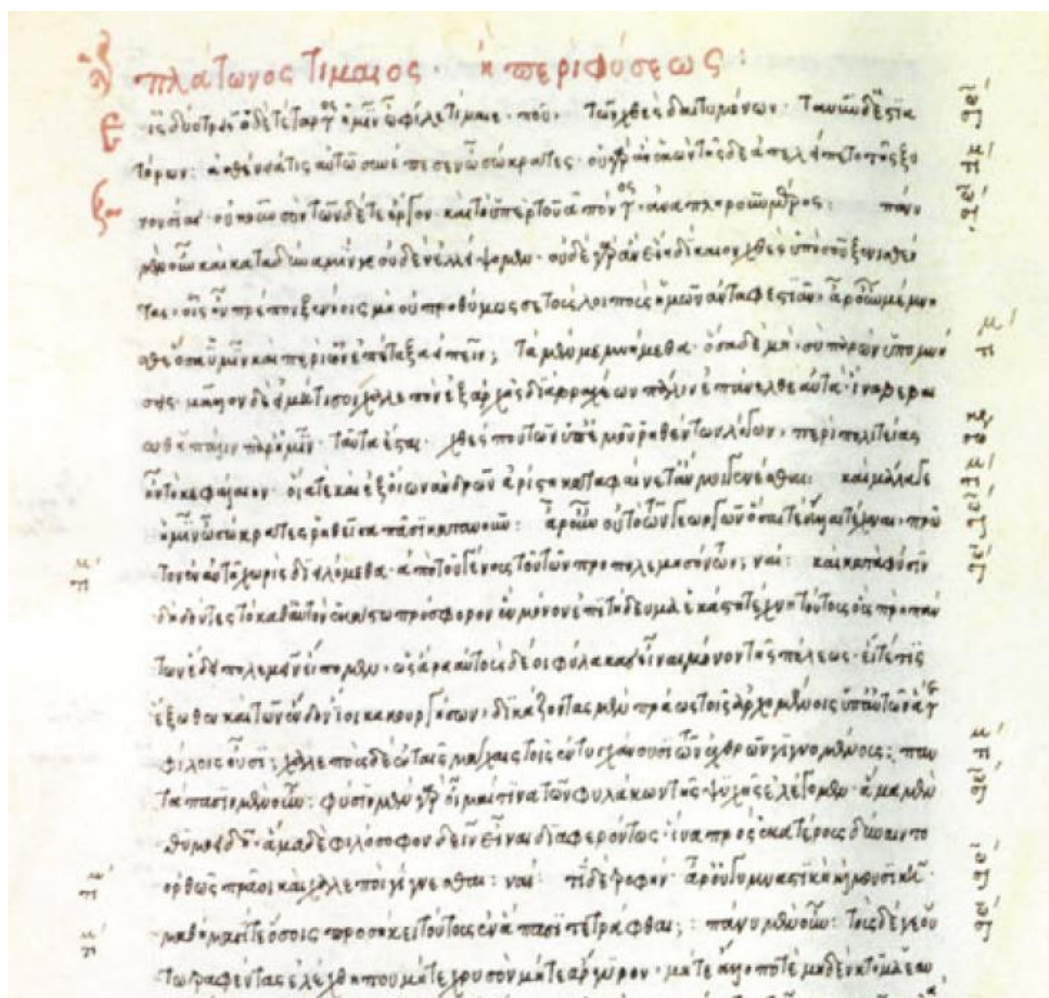 πλάτωνος τίμαιος · ἢ περὶ φύσεως :
εἷς δύο τρεῖς ὁ δὲ τέταρτος ἡμῖν ὦ φίλε τίμαιε · ποῦ · τῶν χθὲς δαιτυμόνων · τανῦν δὲ ἑστια
τόρων : ἀσθένειά τις αὐτῶ συνέπεσεν ὦ σώκρατες · οὐ γὰρ ἂν ἑκὼν τῆσδε ἀπελείπετο τῆς ξυ
νουσίας · οὐκοῦν σὸν τῶνδέ τε ἔργον · καὶ τὸ ὑπὲρ τοῦ ἀπόντος · ἀναπληροῦν μέρος : πάνυ
μὲν οὖν καὶ κατὰ δύναμιν γε οὐδὲν ἐλλείψομεν · οὐδὲ γὰρ ἂν εἴη δίκαιον χθὲς ὑπὸ σοῦ ξενισθέν
τας · οἷς ἦν πρέπον ξενίοις μὴ οὐ προθύμως σε τοὺς λοιποὺς ἡμῶν ἀνταφεστιᾶν · ἆρ' οὖν μέμνη
σθε ὅσα ὑμῖν καὶ περὶ ὧν ἐπέταξα εἰπεῖν ; τὰ μὲν μεμνήμεθα · ὅσα δὲ μὴ · σὺ παρὼν ὑπομνή
σεις · μᾶλλον δὲ εἰ μή τι σοι χαλεπὸν ἐξ ἀρχῆς διὰ βραχέων πάλιν ἐπάνελθε αὐτὰ · ἵνα βεβαι
ωθῆ μᾶλλον παρ' ἡμῖν · ταῦτα ἔσται · χθές που τῶν ὑπ' ἐμοῦ ῥηθέντων λόγων · περὶ πολιτείας
ἦν τὸ κεφάλαιον · οἵα τε καὶ ἐξ οἵων ἀνδρῶν ἀρίστη κατεφαίνετ' ἄν μοι γενέσθαι : καὶ μάλα γε
ἡμῖν ὦ σώκρατες ῥηθεῖσα πᾶσι κατὰ νοῦν : ἆρ' οὖν οὐ τὸ τῶν γεωργῶν ὅσαι τε ἄλλαι τέχναι · πρῶ
τον ἐν αὐτῆ χωρὶς διειλόμεθα · ἀπὸ τοῦ γένους τοῦ τῶν προπολεμησόντων ; ναί : καὶ κατὰ φύσιν
δὴ δόντες τὸ καθ' αὑτὸν ἑκάστω πρόσφορον ἓν μόνον ἐπιτήδευμα ἑκάστη τέχνη τούτους οὓς πρὸ πάν
των ἔδει πολεμεῖν εἴπομεν · ὡς ἄρα αὐτοὺς δέοι φύλακας εἶναι μόνον τῆς πόλεως · εἴτε τις
ἔξωθεν καὶ τῶν ἔνδον ἴοι κακουργήσων · δικάζοντας μὲν πράως τοῖς ἀρχομένοις ὑπ' αὐτῶν
φίλοις οὖσι ; χαλεποὺς δὲ ἐν ταῖς μάχαις τοῖς ἐντυγχάνουσι τῶν ἐχθρῶν γιγνομένοις : παν
τάπασι μὲν οὖν : φύσιν μὲν γὰρ οἶμαί τινα τῶν φυλάκων τῆς ψυχῆς ἐλέγομεν · ἅμα μὲν
θυμοειδῆ · ἅμα δὲ φιλόσοφον δεῖν εἶναι διαφερόντως · ἵνα πρὸς ἑκατέρους δύναιντο
ὀρθῶς πρᾶοι καὶ χαλεποὶ γίγνεσθαι : ναί · τί δὲ τροφήν · ἆρ' οὐ γυμναστικῆ καὶ μουσικῆ ·
μαθήμασί τε ὅσοις προσήκει τούτοις ἐν ἅπασι τετράφθαι ; : πάνυ μὲν οὖν : τοὺς δέ γε οὕ
τω τραφέντας ἐλέχθη που μήτε χρυσὸν μήτε ἄργυρον · μήτε ἄλλο ποτὲ μηδὲν κτῆμα ἑαυ